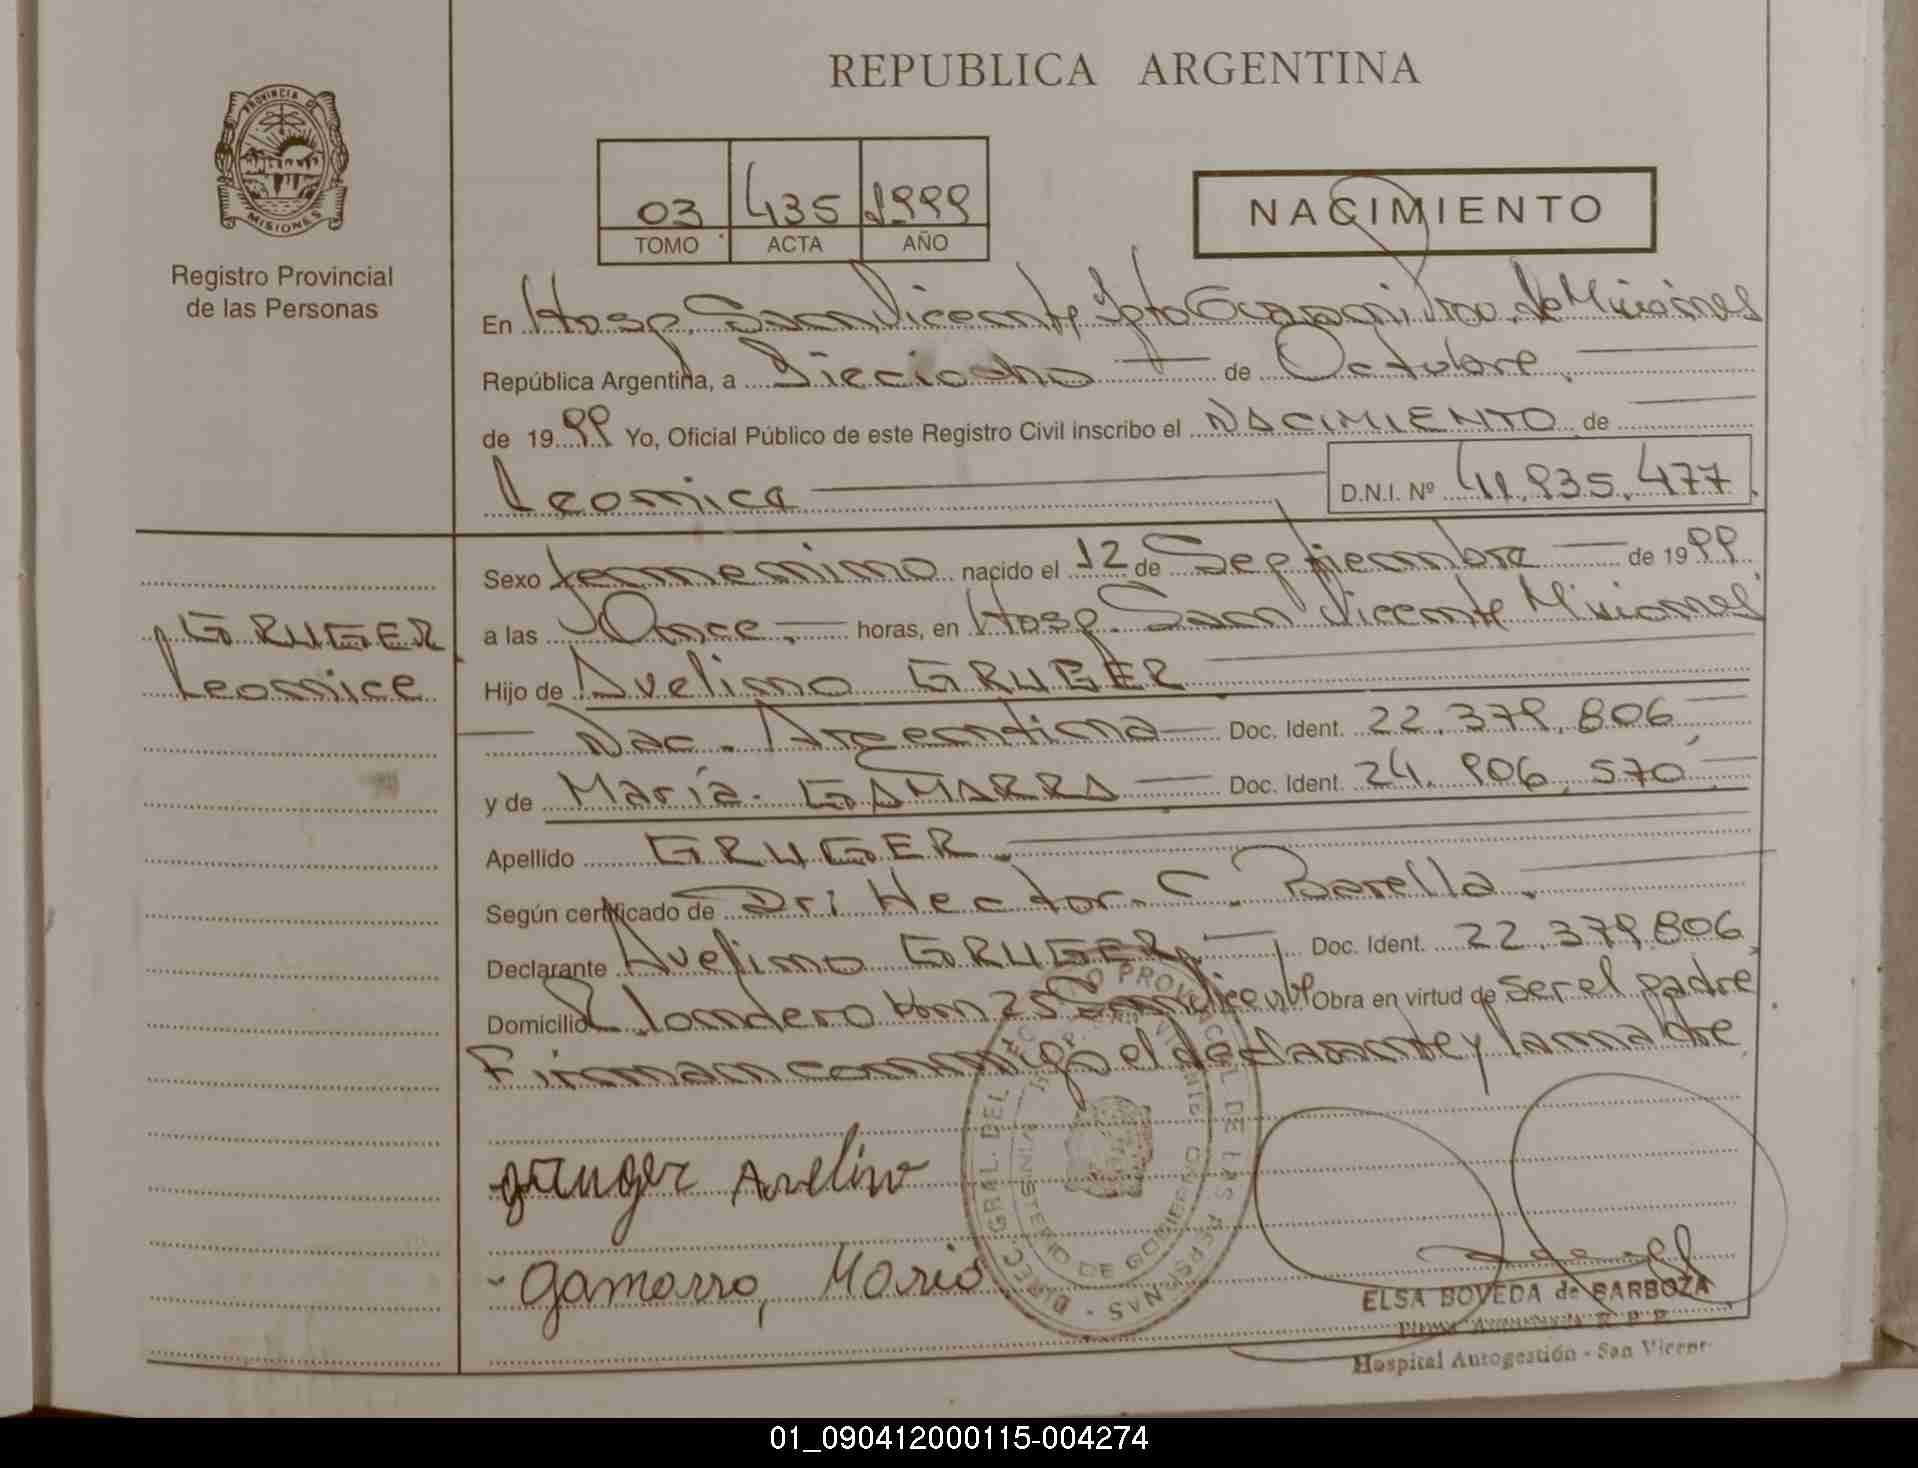 REPUBLICA ARGENTINA
PROVINCIA DE
MISIONES
Registro Provincial
de las Personas
03 435 1999
TOMO ACTA AÑO
NACIMIENTO
En Hosp. San Vicente Dpto Guarani, Prov. de Misiones
República Argentina, a Dieciocho de Octubre.
de 1999 Yo, Oficial Público de este Registro Civil inscribo el NACIMIENTO de
Leonice
D.N.I. Nº 41.935.477
Sexo femenino nacido el 12 de Septiembre de 1999
a las Once, horas, en Hosp. San Vicente Misiones
GRUGER
Leonice
Hijo de Avelino GRUGER
Nac. Argentina Doc. Ident. 22.379.806
y de María GAMARRA Doc. Ident. 24.906.570
Apellido GRUGER.
Según certificado de Dr: Hector C. Barella.
Declarante Avelino GRUGER, Doc. Ident. 22.379.806,
Domicilio Londero Km 25 San Vicente Obra en virtud de ser el padre
Firman conmigo el declarante y la madre
gruger Avelino
Gamarra, Maria
DIREC. GRAL. DEL REGISTRO PROVINCIAL DE LAS PERSONAS
MINISTERIO DE GOBIERNO
ELSA BOVEDA de BARBOZA
Firma Autorizada R. P. P.
Hospital Autogestión - San Vicente
01_090412000115-004274